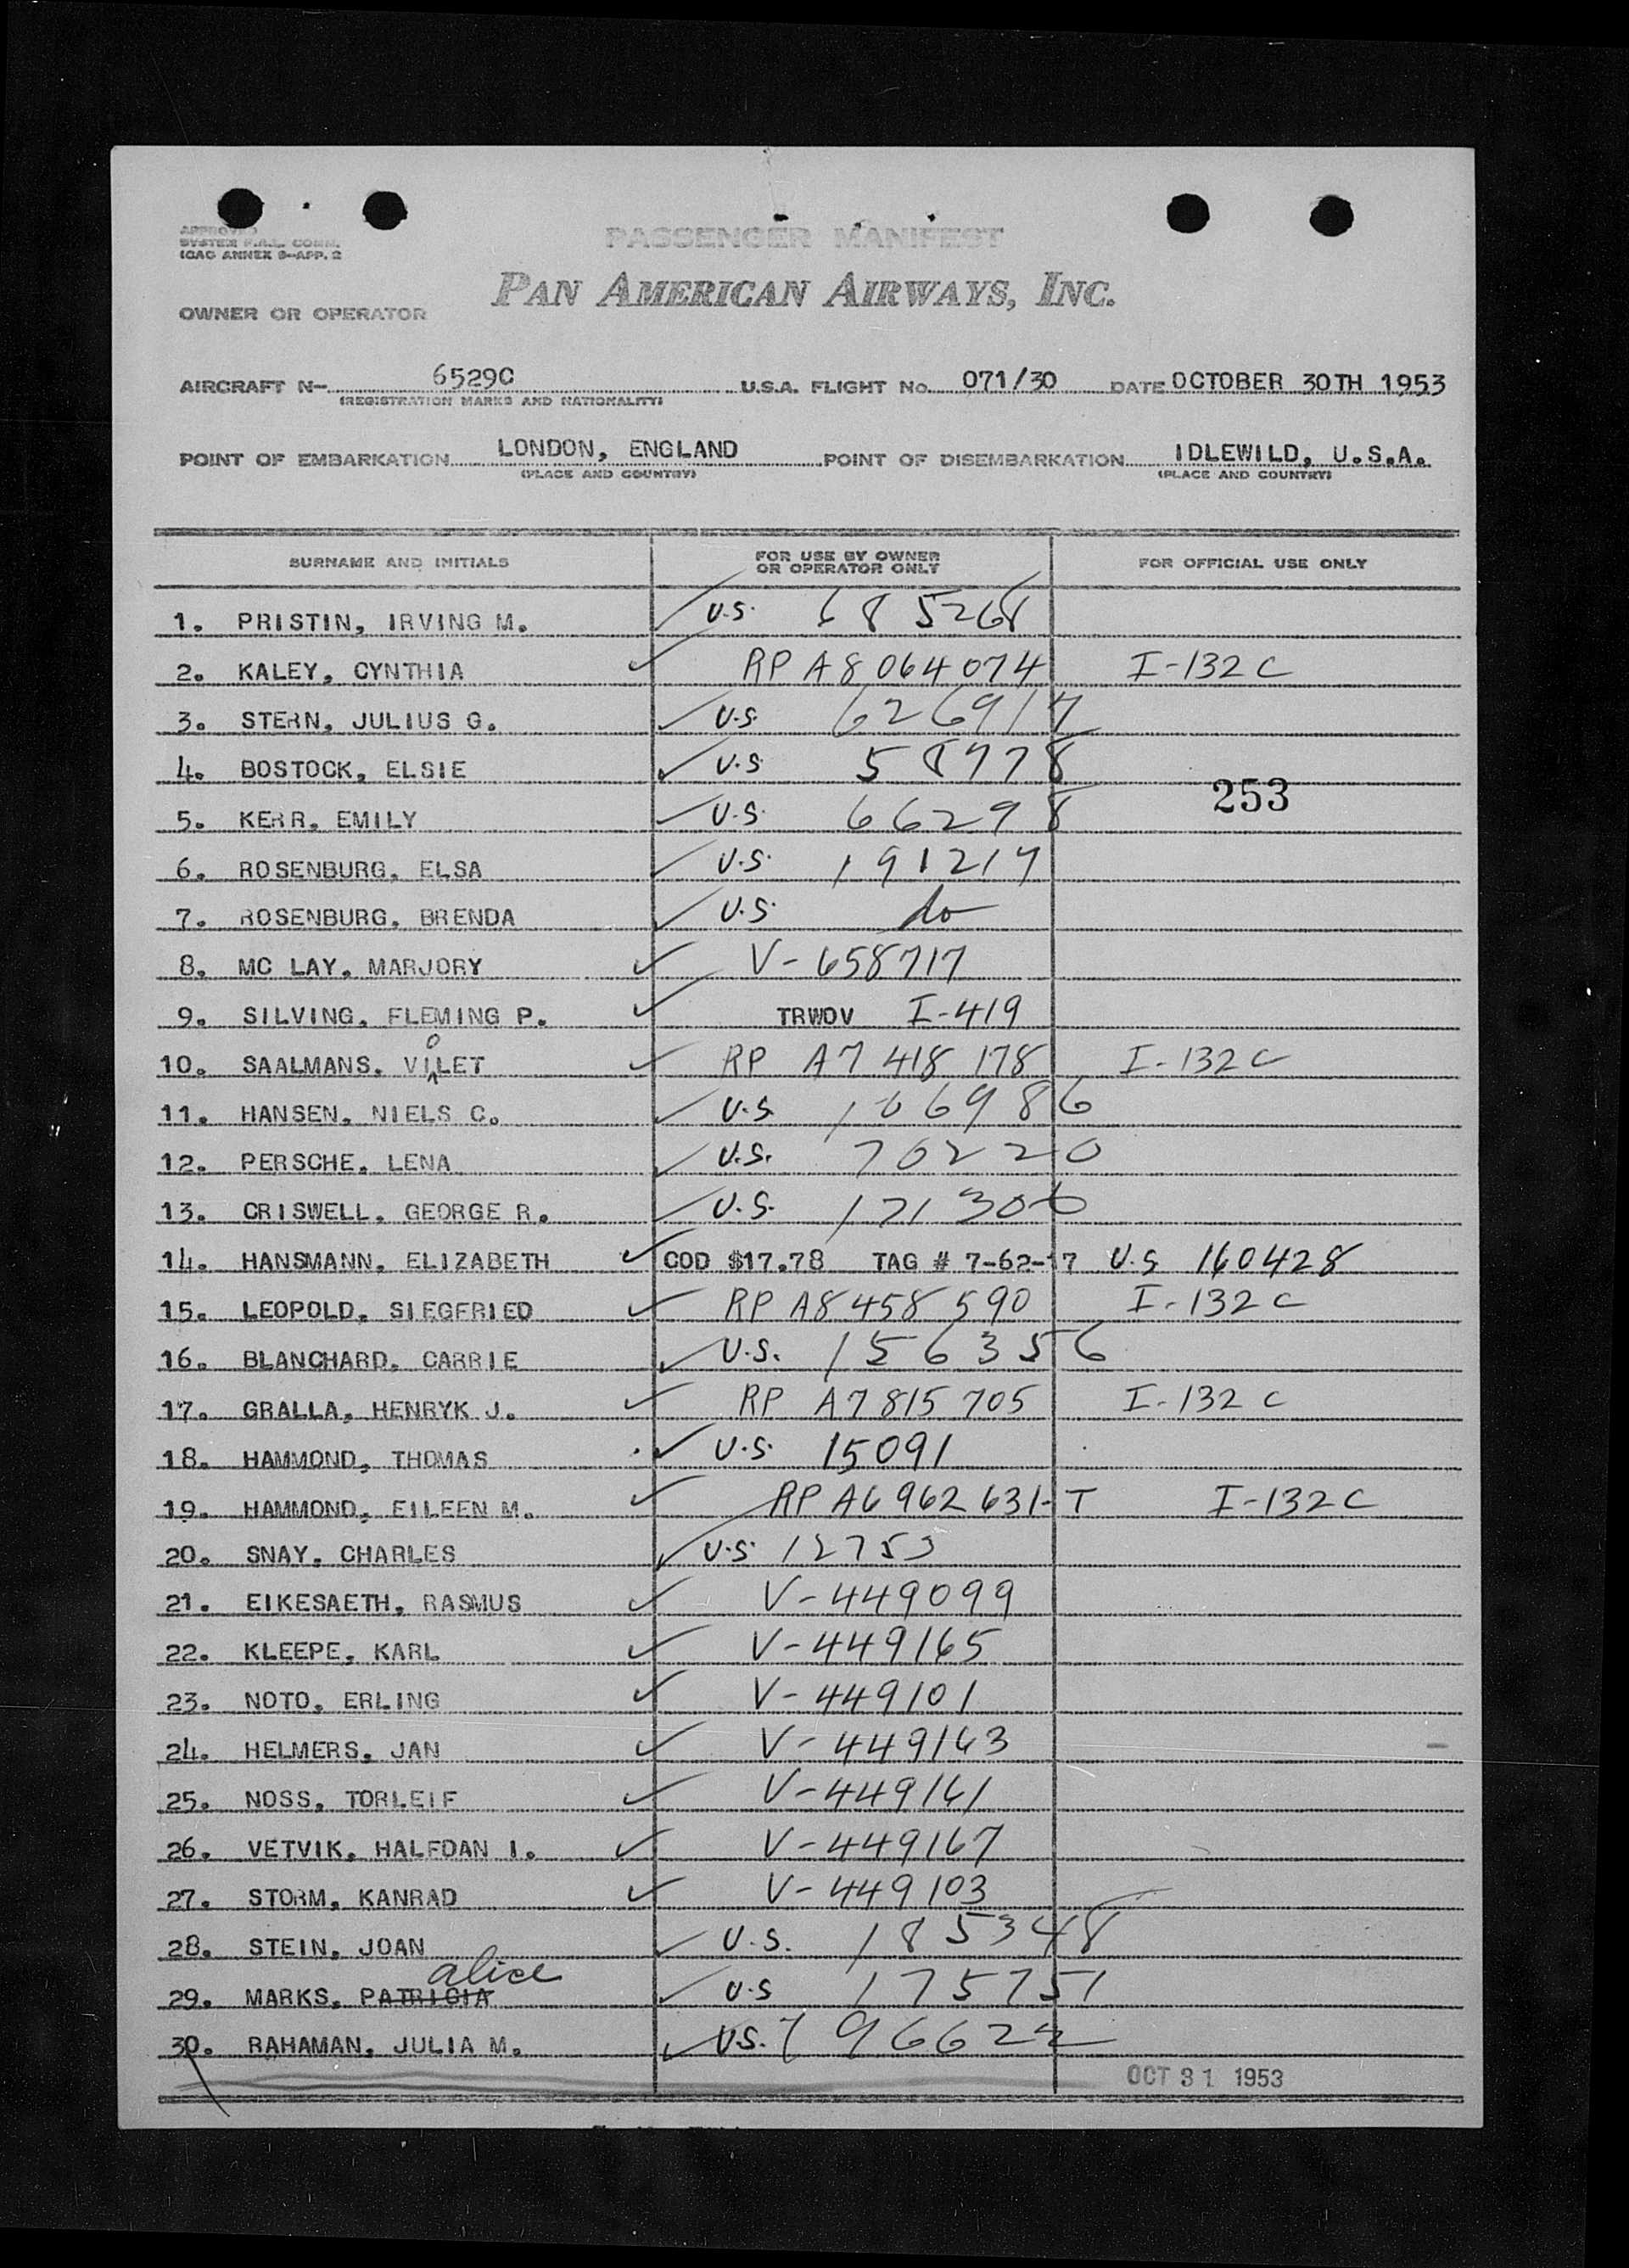 APPROVED
SYSTEM F.A.L. COMM.
ICAO ANNEX 9-APP. 2
PASSENGER MANIFEST
PAN AMERICAN AIRWAYS, INC.
OWNER OR OPERATOR
AIRCRAFT N- 6529C U.S.A. FLIGHT No. 071/30 DATE OCTOBER 30TH 1953
(REGISTRATION MARKS AND NATIONALITY)
POINT OF EMBARKATION LONDON, ENGLAND POINT OF DISEMBARKATION IDLEWILD, U.S.A.
(PLACE AND COUNTRY) (PLACE AND COUNTRY)
SURNAME AND INITIALS FOR USE BY OWNER OR OPERATOR ONLY FOR OFFICIAL USE ONLY
1. PRISTIN, IRVING M. ✓ U.S. 685268
2. KALEY, CYNTHIA ✓ RP A8 064 074 I-132C
3. STERN, JULIUS G. ✓ U.S. 626917
4. BOSTOCK, ELSIE ✓ U.S. 58978
253
5. KERR, EMILY ✓ U.S. 66298
6. ROSENBURG, ELSA ✓ U.S. 191217
7. ROSENBURG, BRENDA ✓ U.S. do
8. MC LAY, MARJORY ✓ V-658717
9. SILVING, FLEMING P. ✓ TRWOV I-419
10. SAALMANS, VIOLET ✓ RP A7 418 178 I-132C
11. HANSEN, NIELS C. ✓ U.S. 106986
12. PERSCHE, LENA ✓ U.S. 70220
13. CRISWELL, GEORGE R. ✓ U.S. 171306
14. HANSMANN, ELIZABETH ✓ COD $17.78 TAG # 7-62-17 U.S 160428
15. LEOPOLD, SIEGFRIED ✓ RP A8 458 590 I-132C
16. BLANCHARD, CARRIE ✓ U.S. 156356
17. GRALLA, HENRYK J. ✓ RP A7 815 705 I-132C
18. HAMMOND, THOMAS ✓ U.S. 15091
19. HAMMOND, EILEEN M. ✓ RP A6 962 631-T I-132C
20. SNAY, CHARLES ✓ U.S. 12753
21. EIKESAETH, RASMUS ✓ V-449099
22. KLEEPE, KARL ✓ V-449165
23. NOTO, ERLING ✓ V-449101
24. HELMERS, JAN ✓ V-449163
25. NOSS, TORLEIF ✓ V-449161
26. VETVIK, HALFDAN I. ✓ V-449167
27. STORM, KANRAD ✓ V-449103
28. STEIN, JOAN ✓ U.S. 185348
alice
29. MARKS, PATRICIA ✓ U.S 175751
30. RAHAMAN, JULIA M. ✓ U.S. 196622
OCT 31 1953